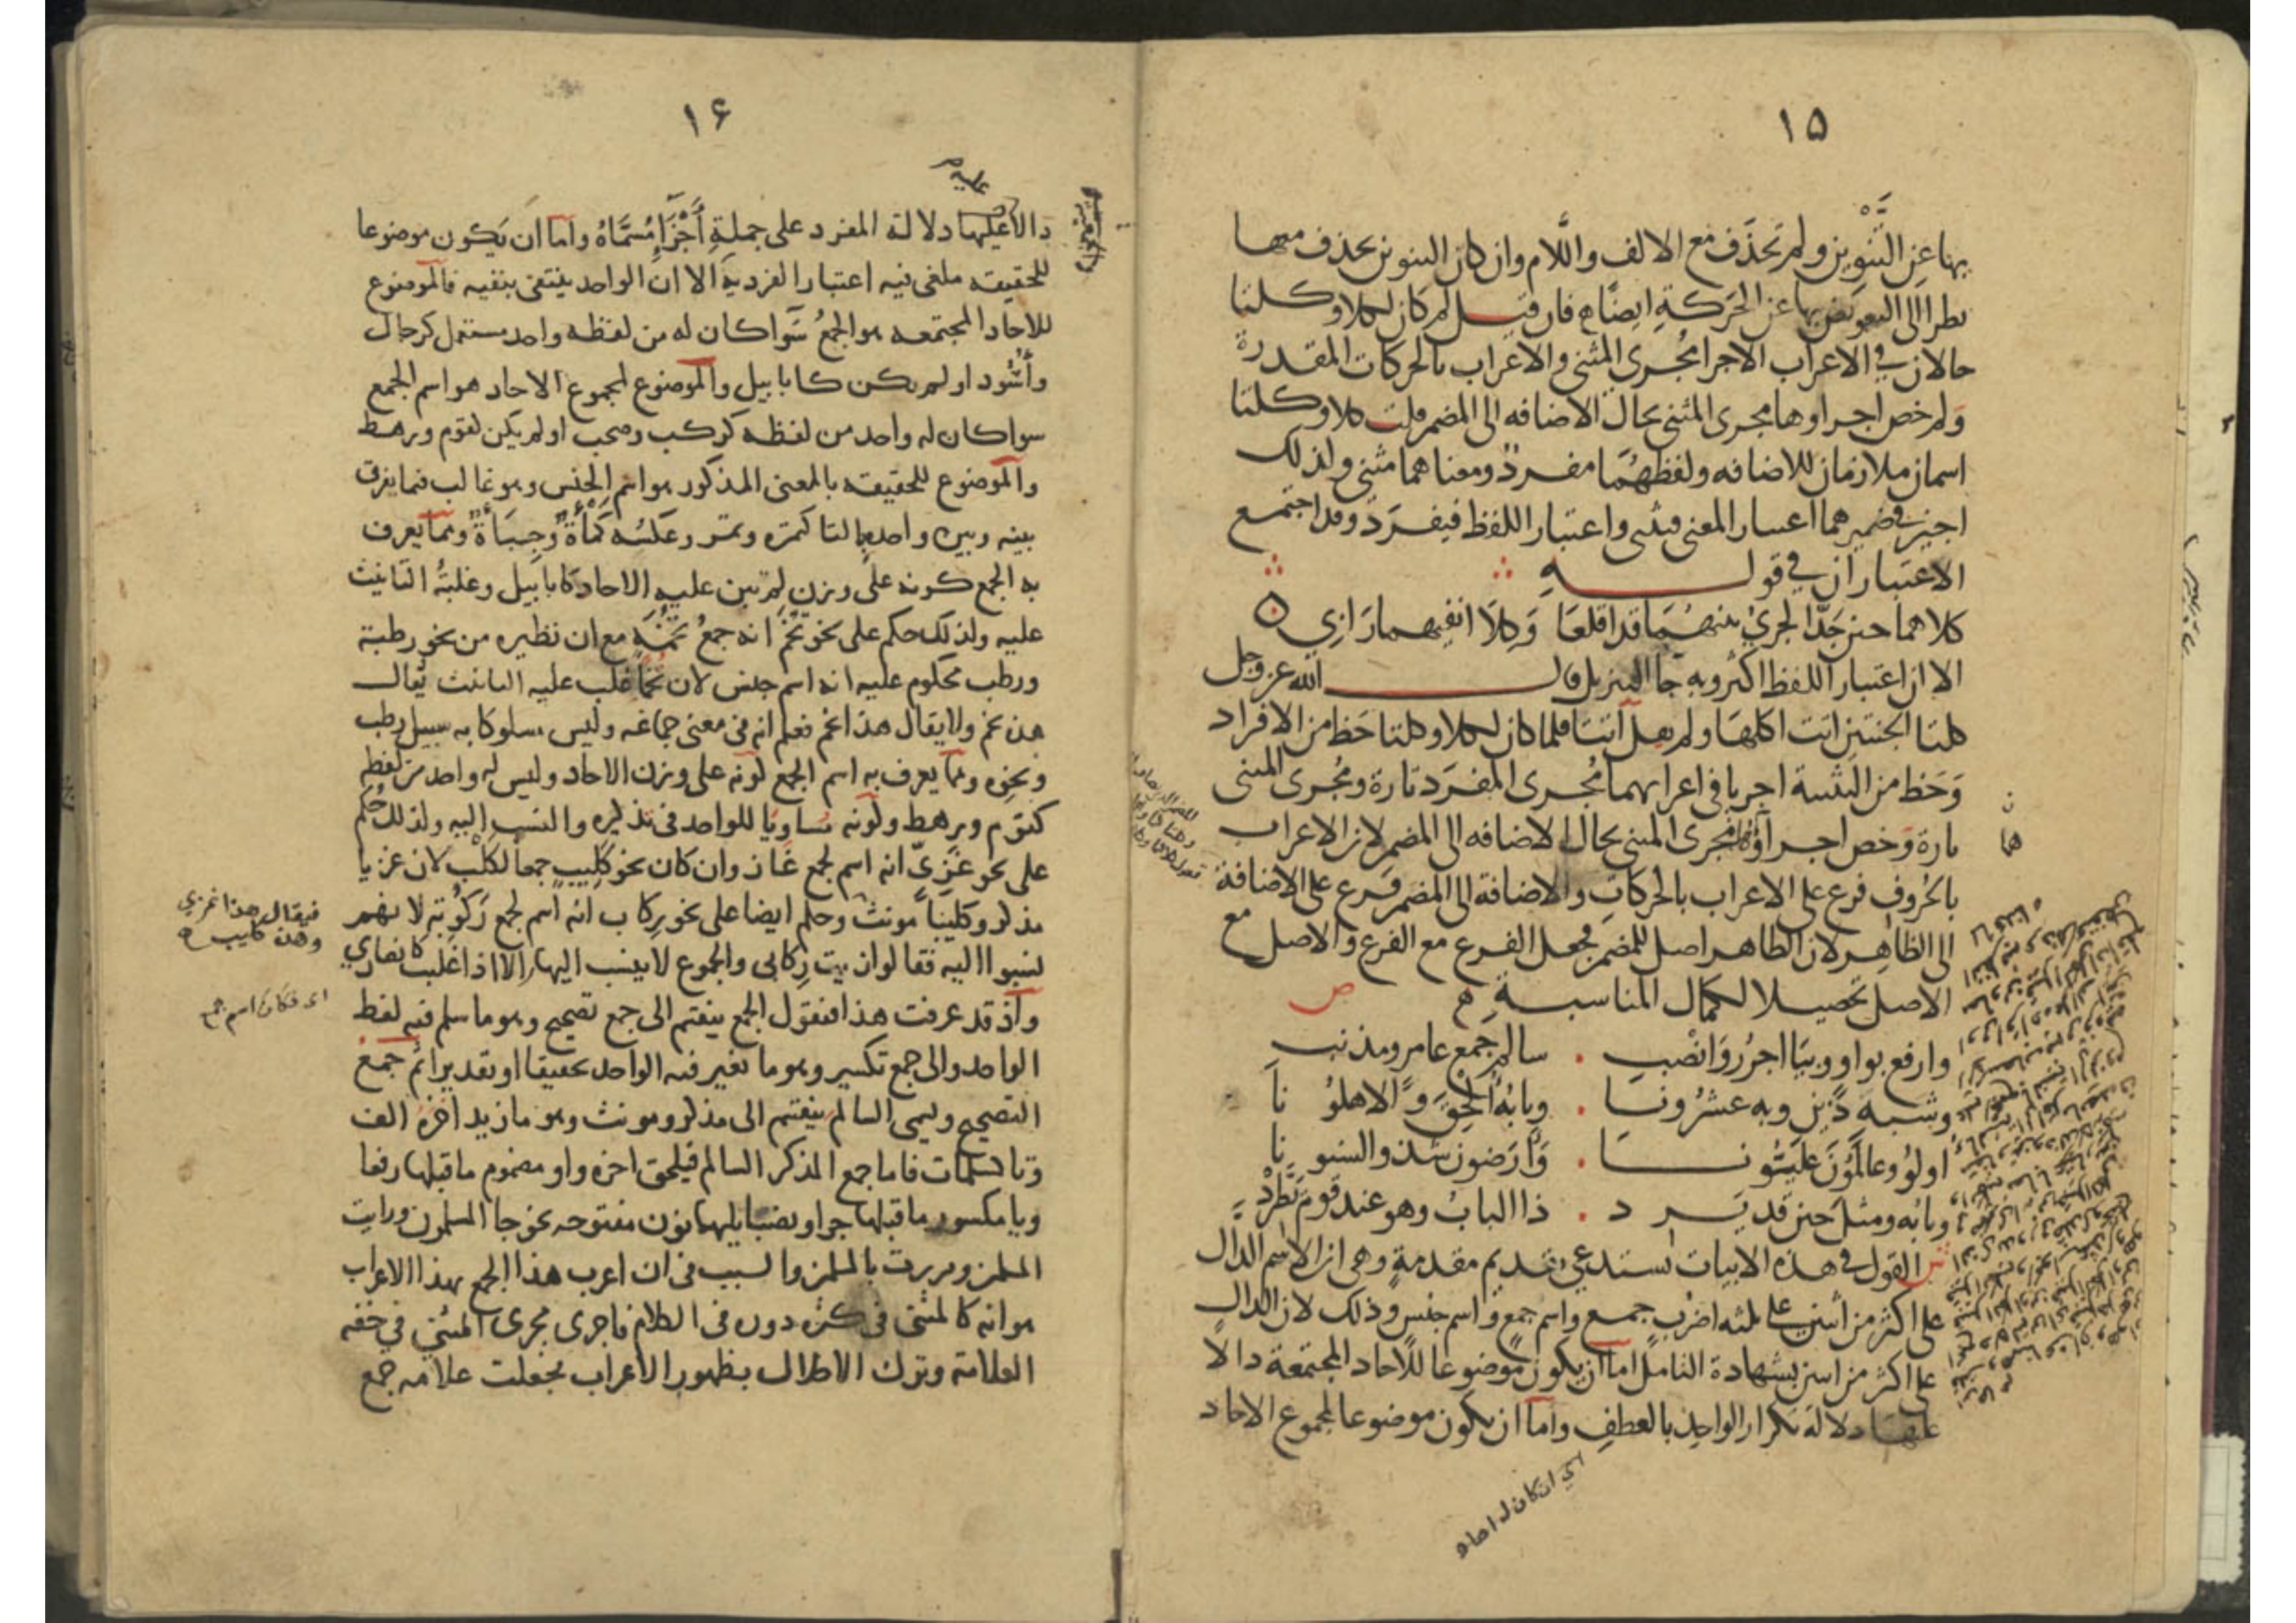 ١٥
بها عن التنوين ولم تحذف مع الالف واللام وان كان التنوين يحذف معها
نظرا الى التعويض بها عن الحركة ايضا فان قيل لم كان لكلا وكلتا
حالان في الاعراب الاجرا مجرى المثنى والاعراب بالحركات المقدرة
ولم خص اجراوهما مجرى المثنى بحال الاضافه الى المضمر قلت كلا وكلتا
اسمان ملازمان للاضافه ولفظهما مفرد ومعناهما مثنى ولذلك
اجيز في ضميرهما اعتبار المعنى فيثنى واعتبار اللفظ فيفرد وقد اجتمع
الاعتباران في قوله
كلاهما حين جد الجري بينهما قد اقلعا وكلا انفيهما رابي
الا ان اعتبار اللفظ اكثر وبه جا التنزيل قال الله عز وجل
كلتا الجنتين اتت اكلها ولم يقل آتتا فلما كان لكلا وكلتا حظ من الافراد
وحظ من التثنية اجريا في اعرابهما مجرى المفرد تارة ومجرى المثنى
تارة وخص اجراؤهما مجرى المثنى بحال الاضافه الى المضمر لان الاعراب
بالحروف فرع على الاعراب بالحركات والاضافة الى المضمر فرع على الاضافة
الى الظاهر لان الظاهر اصل للمضمر فجعل الفرع مع الفرع والاصل مع
الاصل تحصيلا لكمال المناسبة ص
وارفع بواو وبيا اجرر وانصب سالم جمع عامر ومذنب
وشبه ذين وبه عشرونا وبابه الحق والاهلونا
اولو وعالمون عليونا وارضون شذ والسنونا
وبابه ومثل حين قد يرد ذا الباب وهو عند قوم يطرد
ش القول في هذه الابيات يستدعي تقديم مقدمة وهي ان الاسم الدال
على اكثر من اثنين على ثلثه اضرب جمع واسم جمع واسم جنس وذلك لان الدال
على اكثر من اثنين بشهادة التامل اما ان يكون موضوعا للاحاد المجتمعة دالا
عليها دلالة تكرار الواحد بالعطف واما ان يكون موضوعا لمجموع الاحاد
اي ان كان له احاد
هما
١۶
دالا عليها دلالة المفرد على جملة أجزاء مسماه واما ان يكون موضوعا
للحقيقه ملغى فيه اعتبار الفردية الا ان الواحد ينتفى بنفيه فالموضوع
للاحاد المجتمعه هو الجمع سوا كان له من لفظه واحد مستعمل كرجال
وأسود او لم يكن كابابيل والموضوع لمجموع الاحاد هو اسم الجمع
سوا كان له واحد من لفظه كركب وصحب او لم يكن كقوم ورهط
والموضوع للحقيقه بالمعنى المذكور هو اسم الجنس وهو غالب فيما يفرق
بينه وبين واحده بالتا كتمرة وتمر وعكسه كمأة وجبأة ومما يعرف
به الجمع كونه على وزن لم تبن عليه الاحاد كابابيل وغلبة التانيث
عليه ولذلك حكم على نحو تخم انه جمع تخمة مع ان نظيره من نحو رطبة
ورطب محكوم عليه انه اسم جنس لان تخما غلب عليه التانيث يقال
هذه تخم ولا يقال هذا تخم فعلم انه في معنى جماعه وليس مسلوكا به سبيل رطب
ونحوه ومما يعرف به اسم الجمع كونه على وزن الاحاد وليس له واحد من لفظه
كقوم ورهط وكونه مساويا للواحد في تذكيره والنسب اليه ولذلك حكم
على نحو غزي انه اسم لجمع غاز وان كان نحو كليب جمعا لكلب لان غزيا
مذكر وكليبا مونث وحكم ايضا على نحو ركاب انه اسم لجمع ركوبة لانهم
نسبوا اليه فقالوا زيت ركابي والجموع لا ينسب اليها الا اذا غلب كانصاري
واذ قد عرفت هذا فنقول الجمع ينقسم الى جمع تصحيح وهو ما سلم فيه لفظ
الواحد والى جمع تكسير وهو ما تغير فيه الواحد تحقيقا او تقديرا ثم جمع
التصحيح ويسمى السالم ينقسم الى مذكر ومونث وهو ما زيد اخره الف
وتا كسلمات فاما جمع المذكر السالم فيلحق اخره واو مضموم ما قبلها رفعا
ويا مكسور ما قبلها جرا ونصبا يليهما نون مفتوحه نحو جا المسلمون ورايت
المسلمين ومررت بالمسلمين والسبب في ان اعرب هذا الجمع بهذا الاعراب
هو انه كالمثنى في كثره دوره في الكلام فاجرى مجرى المثنى في خفه
العلامة وترك الاخلال بظهور الاعراب فجعلت علامه جمع
فيقال هذا غزي
وهذه كليب
اى فكان اسم جمع